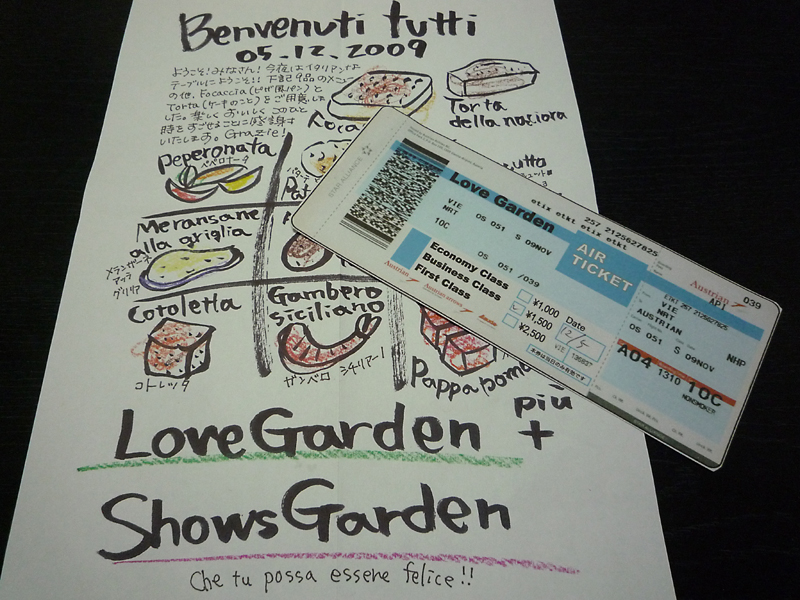 Benvenuti tutti
05.12.2009
ようこそ!みなさん!今夜はイタリアンな
テーブルにようこそ!!下記9品のメニュー
の他、Focaccia(ピザ風パン)と
Torta(ケーキのこと)をご用意しま
した。楽しく おいしく このひと
時をすごせることに感謝
いたします。Grazie!
Foca
Torta
della nasiora
peperonata
ペペロナータ
Pat
utta
Meransane
alla griglia
メランザーネ
アッラ
グリリア
Cotoletta
コトレッタ
Gambero
siciliano
ガンベロ シチリアーノ
Pappa pomo
più
+
Love Garden
Shows Garden
Che tu possa essere felice!!
STAR ALLIANCE
Love Garden
etix etkt 257 2125627825
etix etkt
VIE
NRT
OS 051 S 09NOV
10C
OS 051 /039
AIR
TICKET
Economy Class
Business Class
First Class
Austrian
¥1,000
¥1,500
¥2,500
Date
12/5
本券は当日のみ有効です
Austrian
API 039
ETKT 257 2125627825
VIE
NRT
AUSTRIAN
OS 051 S 09NOV
NHP
A04 1310 10C